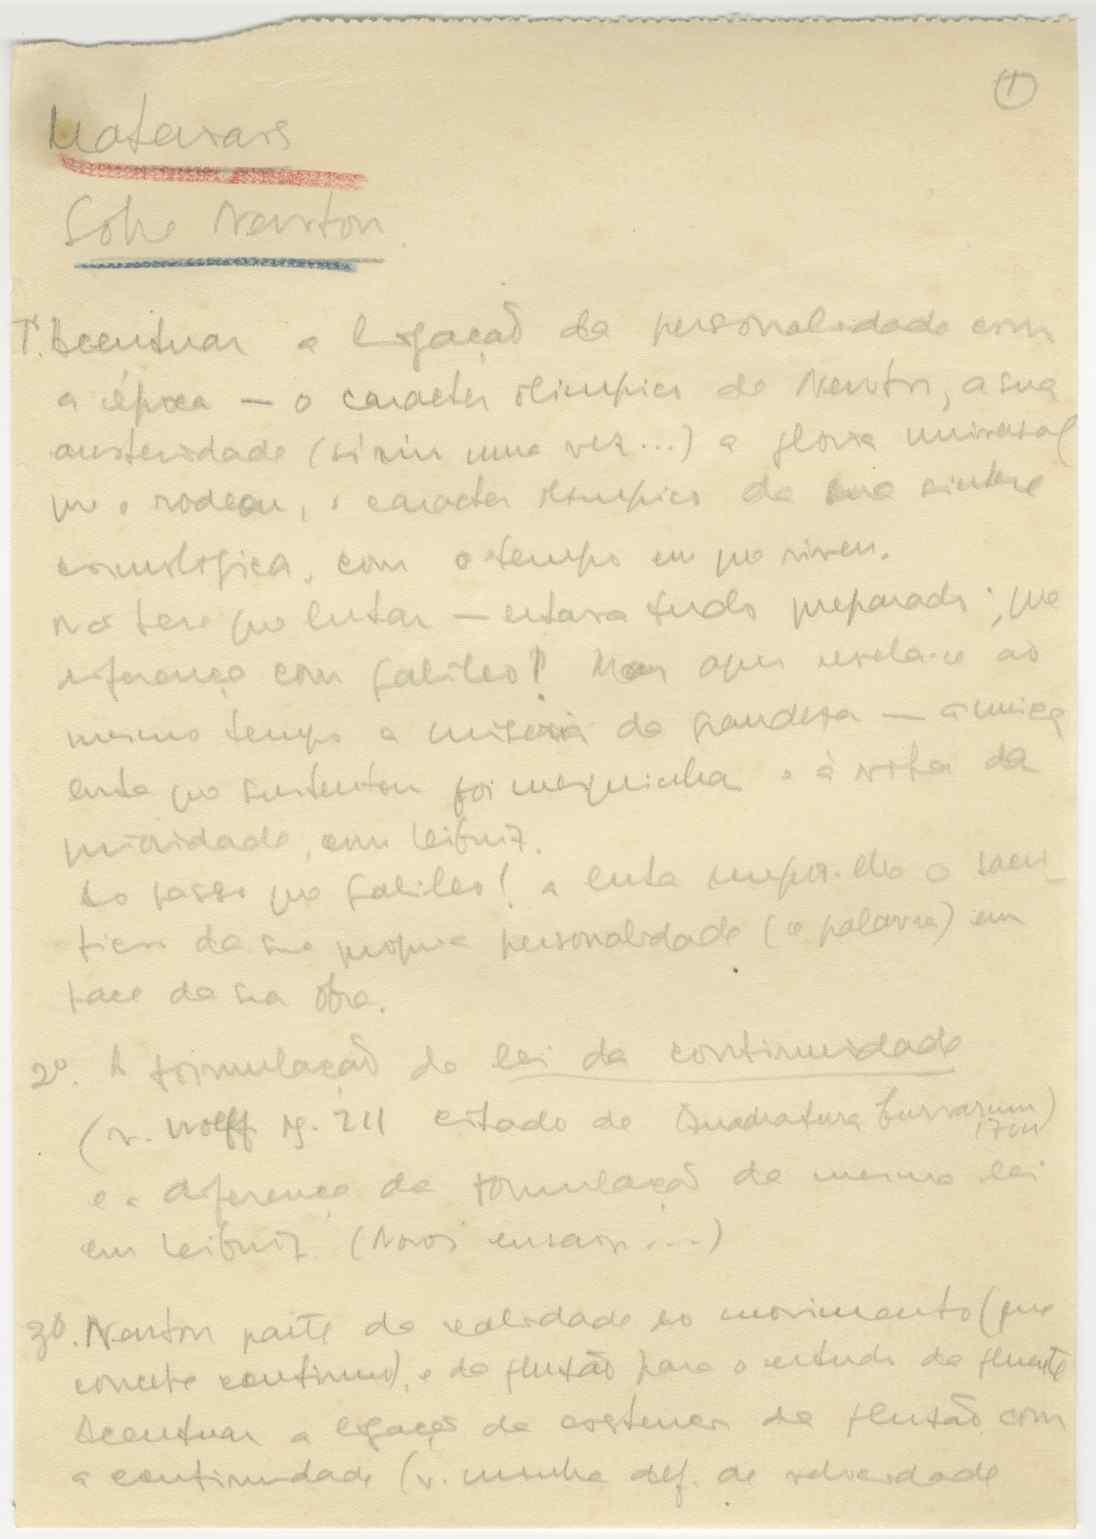 ①
Materiais
Sobre Newton
1º. Acentuar a ligação da personalidade com
a época — o caracter olimpico de Newton, a sua
austeridade (só riu uma vez...) a gloria universal
que o rodeou, o caracter olimpico da sua sintese
cosmologica, com o tempo em que viveu.
Não teve que lutar — estava tudo preparado; que
diferença com Galileo! Mas aqui revela-se ao
mesmo tempo a miseria da grandeza — a unica
luta que sustentou foi mesquinha, a à volta da
prioridade, com Leibniz.
Ao passo que Galileo! a luta impoz-lhe o sacri-
ficio da sua propria personalidade (a palavra) em
face da sua obra.
2º. A formulação da lei da continuidade
(v. Wolff pg. 211 citado de Quadratura Curvarum)
1704
e a diferença da formulação da mesma lei
em Leibniz. (Novos ensaios....)
3º. Newton parte da realidade do movimento (que
concebe continuo), e da fluxão para o estudo da fluente
Acentuar a ligação da existencia da fluxão com
a continuidade (v. minha def. de velocidade